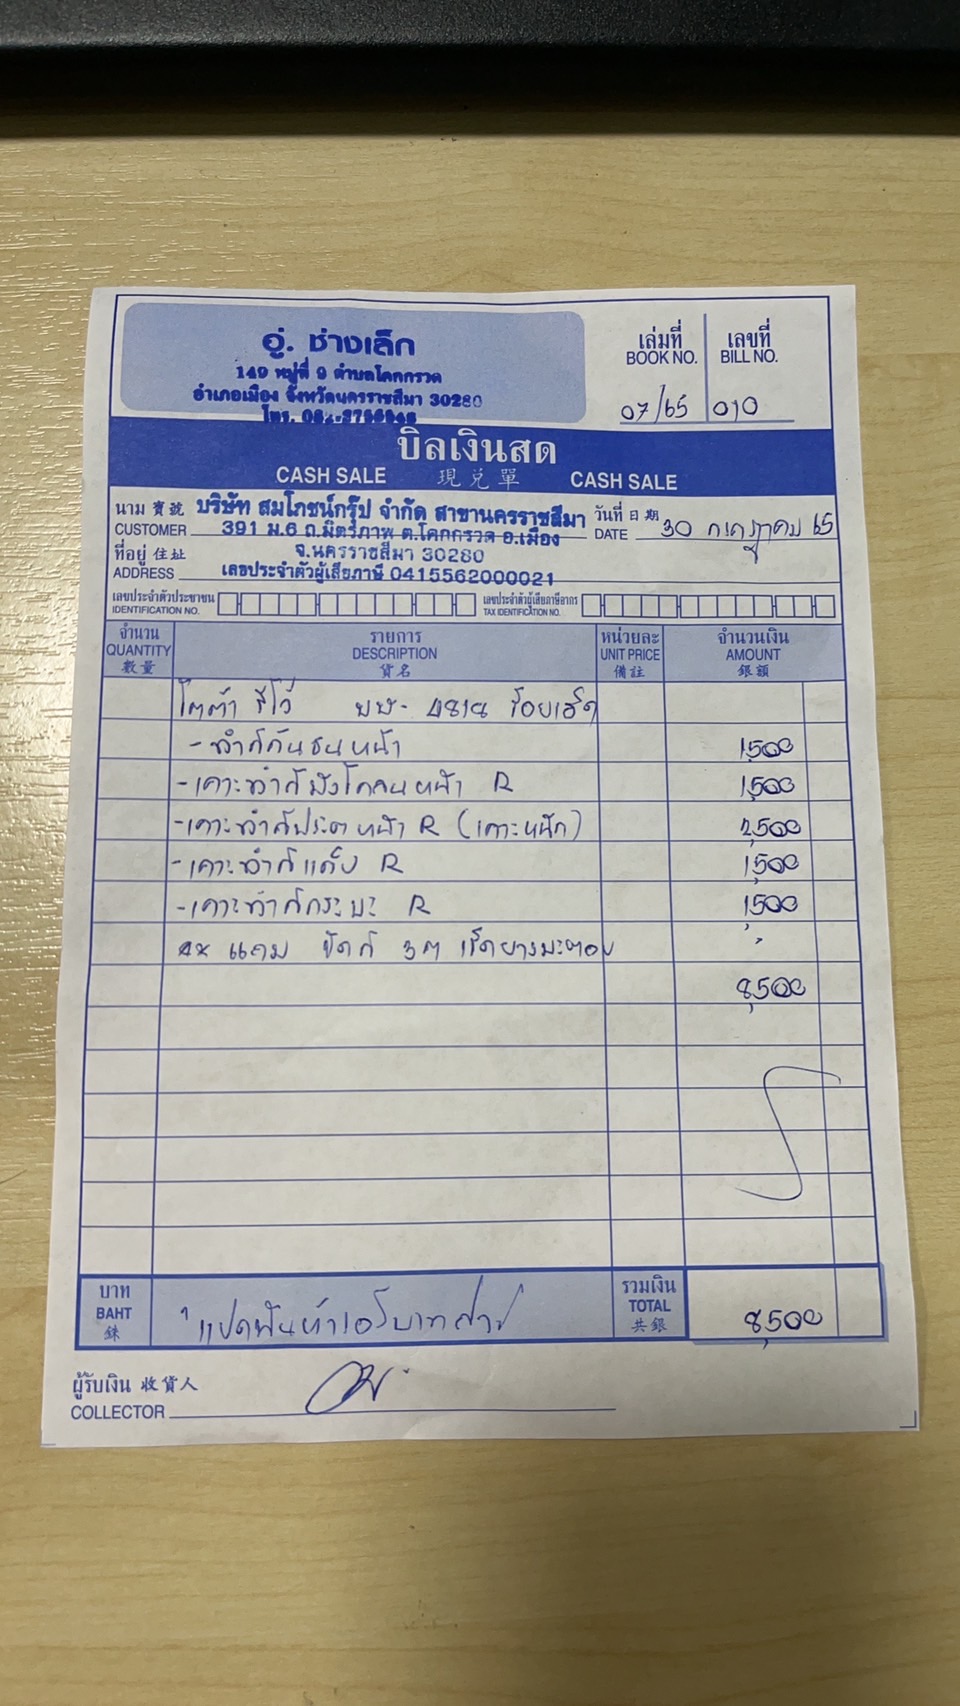 อู่. ช่างเล็ก
149 หมู่ที่ 9 ตำบลโคกกรวด
อำเภอเมือง จังหวัดนครราชสีมา 30280
โทร.
เล่มที่ เลขที่
BOOK NO. BILL NO.
07/65 010
บิลเงินสด
CASH SALE 現兌單 CASH SALE
นาม 賓號 บริษัท สมโภชน์กรุ๊ป จำกัด สาขานครราชสีมา วันที่ 日期
CUSTOMER 391 ม.6 ถ.มิตรภาพ ต.โคกกรวด อ.เมือง DATE 30 กรกฎาคม 65
ที่อยู่ 住址 จ.นครราชสีมา 30280
ADDRESS เลขประจำตัวผู้เสียภาษี 0415562000021
เลขประจำตัวประชาชน เลขประจำตัวผู้เสียภาษีอากร
IDENTIFICATION NO. TAX IDENTIFICATION NO.
จำนวน รายการ หน่วยละ จำนวนเงิน
QUANTITY DESCRIPTION UNIT PRICE AMOUNT
數量 貨名 備註 銀額
โตต้า รีโว้ ผษ-
- ทำสีกันชนหน้า 1,500
- เคาะทำสีบังโคลนหน้า R 1,500
- เคาะทำสีประตูหน้า R (เคาะหนัก) 2,500
- เคาะทำสีแค็ป R 1,500
- เคาะทำสีกระบะ R 1,500
** แถม ขัดสี 3M เช็ดยางมะตอย
8,500
บาท รวมเงิน
BAHT แปดพันห้าร้อยบาทถ้วน TOTAL 8,500
銖 共銀
ผู้รับเงิน 收貨人
COLLECTOR